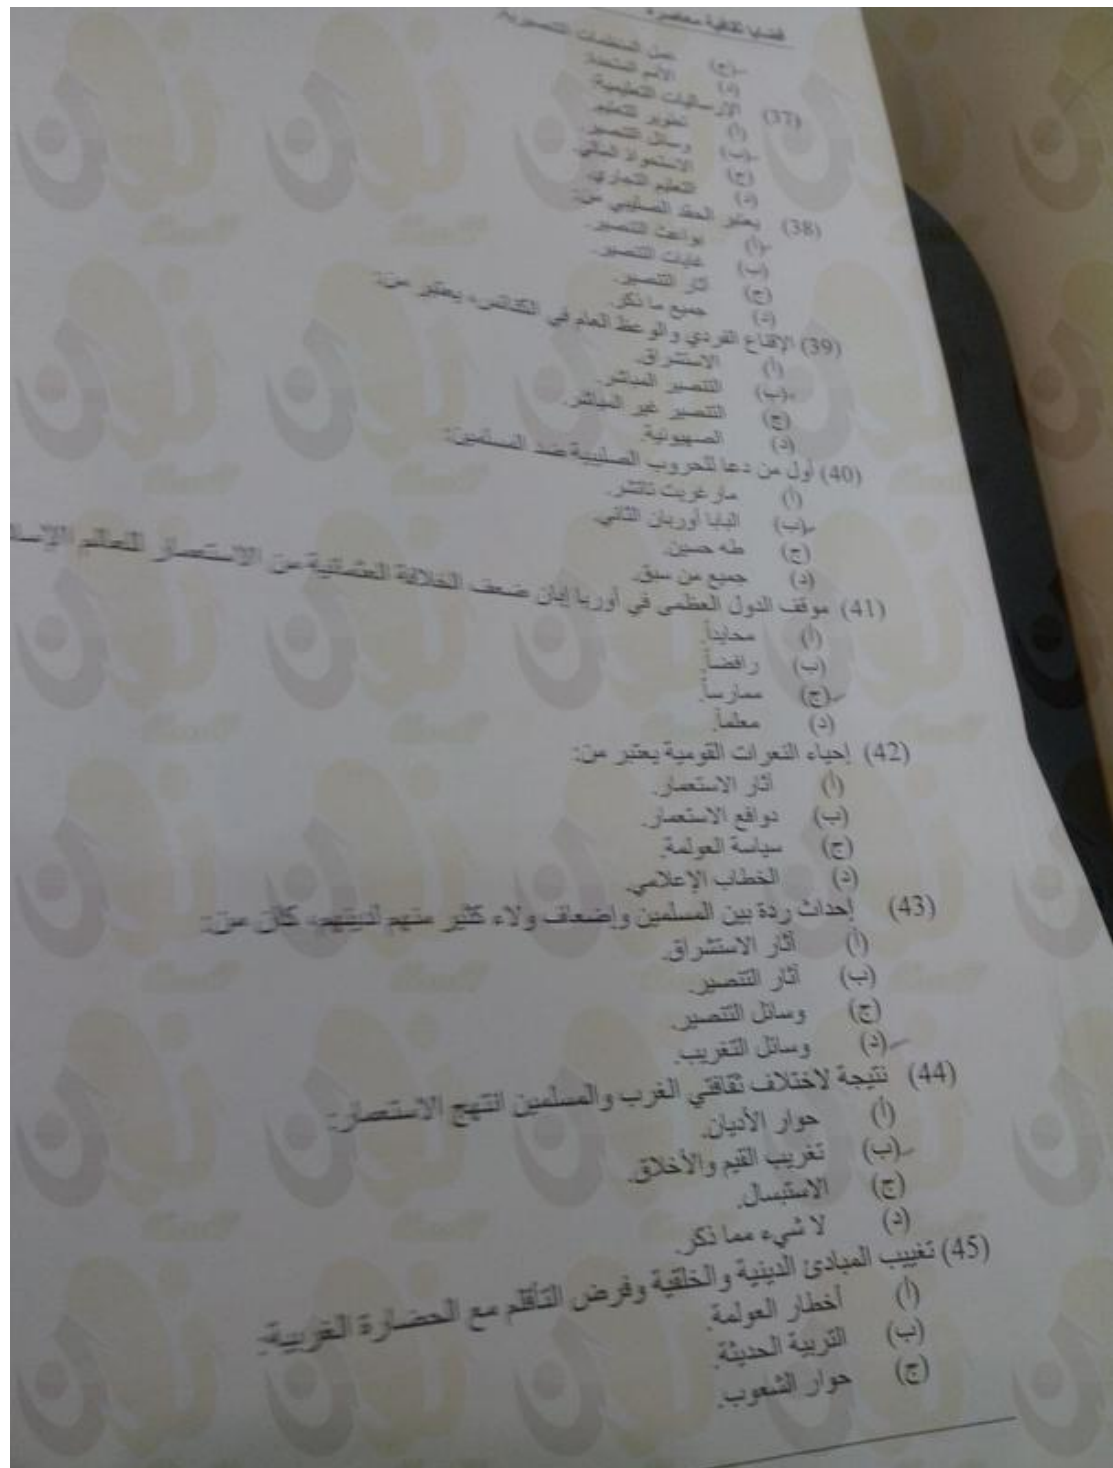 قضايا ثقافية معاصرة
(ج) عمل المنظمات التنصيرية.
(د) الأمم المتحدة.
(37) الإرساليات التعليمية:
(أ) تطوير التعليم.
(ب) وسائل التنصير.
(ج) الاستحواذ المالي.
(د) التعليم التجاري.
(38) يعتبر الحقد الصليبي من:
(أ) بواعث التنصير.
(ب) غايات التنصير.
(ج) آثار التنصير.
(د) جميع ما ذكر.
(39) الإقناع الفردي والوعظ العام في الكنائس، يعتبر من:
(أ) الاستشراق.
(ب) التنصير المباشر.
(ج) التنصير غير المباشر.
(د) الصهيونية.
(40) أول من دعا للحروب الصليبية ضد المسلمين:
(أ) مارغريت تاتشر.
(ب) البابا أوربان الثاني.
(ج) طه حسين.
(د) جميع من سبق.
(41) موقف الدول العظمى في أوربا إبان ضعف الخلافة العثمانية من الاستعمار للعالم
(أ) محايداً.
(ب) رافضاً.
(ج) ممارساً.
(د) معلماً.
(42) إحياء النعرات القومية يعتبر من:
(أ) آثار الاستعمار.
(ب) دوافع الاستعمار.
(ج) سياسة العولمة.
(د) الخطاب الإعلامي.
(43) إحداث ردة بين المسلمين وإضعاف ولاء كثير منهم لدينهم، كان من:
(أ) آثار الاستشراق.
(ب) آثار التنصير.
(ج) وسائل التنصير.
(د) وسائل التغريب.
(44) نتيجة لاختلاف ثقافتي الغرب والمسلمين انتهج الاستعمار:
(أ) حوار الأديان.
(ب) تغريب القيم والأخلاق.
(ج) الاستبسال.
(د) لا شيء مما ذكر.
(45) تغييب المبادئ الدينية والخلقية وفرض التأقلم مع الحضارة الغربية:
(أ) أخطار العولمة.
(ب) التربية الحديثة.
(ج) حوار الشعوب.